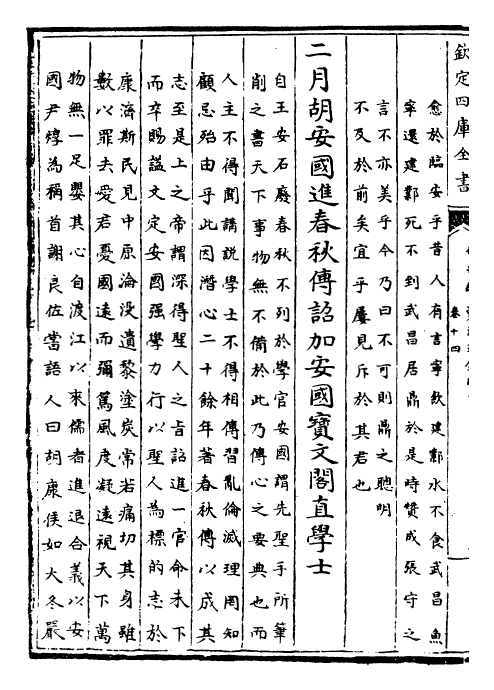 欽定四庫全書
卷十四
愈於臨安乎昔人有言寧飲建鄴水不食武昌魚
寧還建鄴死不到武昌居鼎於是時贊成張守之
言不亦美乎今乃曰不可則鼎之聰明
不及於前矣宜乎屢見斥於其君也
二月胡安國進春秋傳詔加安國寶文閣直學士
自王安石廢春秋不列於學官安國謂先聖手所筆
削之書天下事物無不備於此乃傳心之要典也而
人主不得聞講說學士不得相傳習亂倫滅理罔知
顧忌殆由乎此因潛心二十餘年著春秋傳以成其
志至是上之帝謂深得聖人之旨詔進一官命未下
而卒賜諡文定安國强學力行以聖人為標的志於
康濟斯民見中原淪沒遺黎塗炭常若痛切其身雖
數以罪去愛君憂國遠而彌篤風度凝遠視天下萬
物無一足嬰其心自渡江以來儒者進退合義以安
國尹焞為稱首謝良佐嘗語人曰胡康侯如大冬嚴